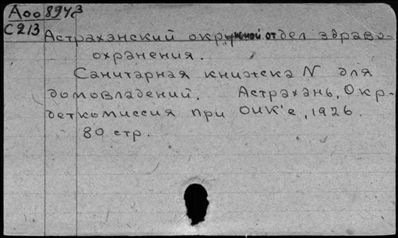 Аоо 8943
С213
Астраханский окружной отдел здраво-
охранения.
Санитарная книжка N для
домовладений. Астрахань, Окр-
деткомиссия при ОИК'е, 1926.
80 стр.